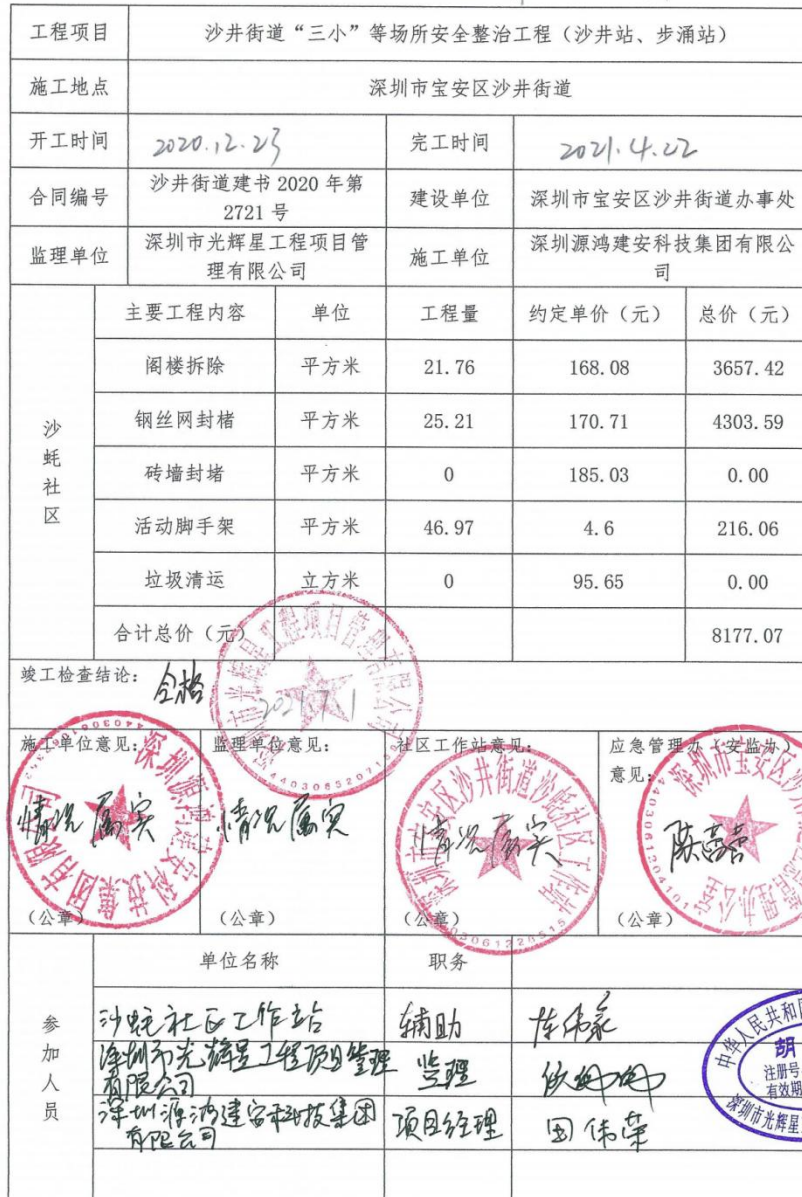 工程项目 沙井街道“三小”等场所安全整治工程（沙井站、步涌站）
施工地点 深圳市宝安区沙井街道
开工时间 2020.12.23 完工时间 2021.4.22
合同编号 沙井街道建书 2020 年第 2721 号 建设单位 深圳市宝安区沙井街道办事处
监理单位 深圳市光辉星工程项目管理有限公司 施工单位 深圳源鸿建安科技集团有限公司
沙蚝社区
主要工程内容 单位 工程量 约定单价（元） 总价（元）
阁楼拆除 平方米 21.76 168.08 3657.42
钢丝网封楮 平方米 25.21 170.71 4303.59
砖墙封堵 平方米 0 185.03 0.00
活动脚手架 平方米 46.97 4.6 216.06
垃圾清运 立方米 0 95.65 0.00
合计总价（元） 8177.07
竣工检查结论： 合格
2021.7.1
施工单位意见： 监理单位意见： 社区工作站意见： 应急管理办（安监办）意见：
情况属实 情况属实 情况属实
（公章） （公章） （公章） （公章）
单位名称 职务
参加人员
沙蚝社区工作站 辅助
深圳市光辉星工程项目管理有限公司 监理
深圳源鸿建安科技集团有限公司 项目经理
中华人民共和国
胡
注册号
有效期
深圳市光辉星